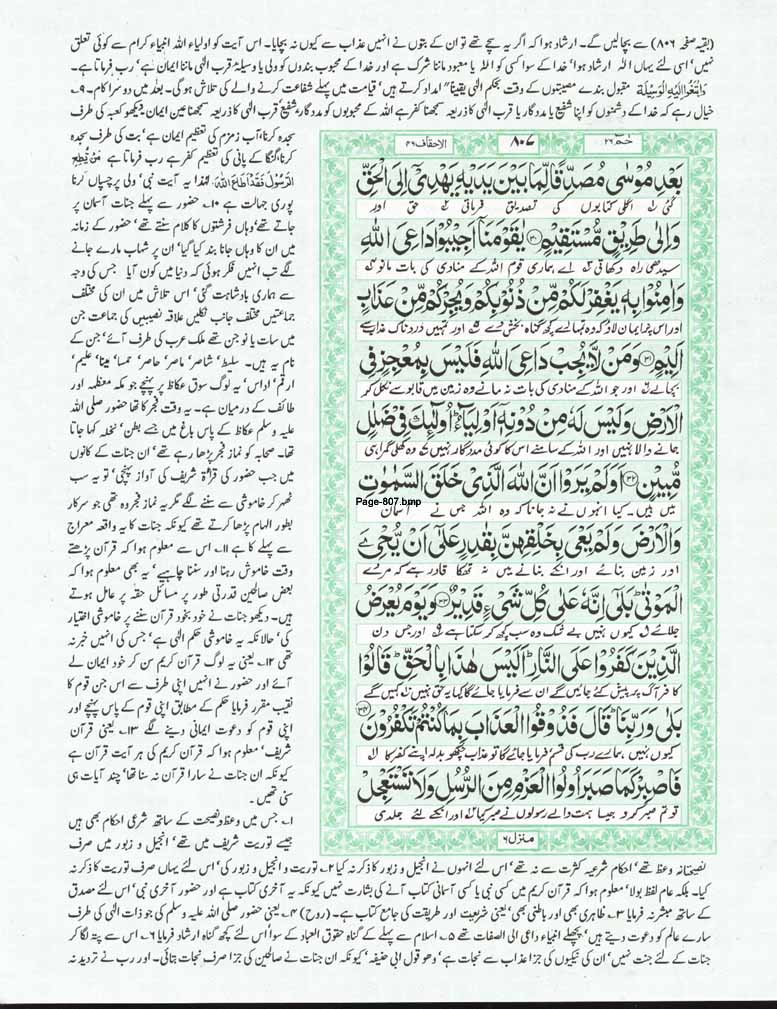 (بقیہ صفحہ ۸۰۶) سے بچالیں گے۔ ارشاد ہوا کہ اگر یہ سچے تھے تو ان کے بتوں نے انہیں عذاب سے کیوں نہ بچایا۔ اس آیت کو اولیاء اللہ انبیاء کرام سے کوئی تعلق
نہیں' اسی لئے یہاں اللہ ارشاد ہوا' خدا کے سوا کسی کو اللہ یا معبود ماننا شرک ہے اور خدا کے محبوب بندوں کو ولی یا وسیلۂ قرب الٰہی ماننا ایمان ہے' رب فرماتا ہے۔
وَابْتَغُوا إِلَيْهِ الْوَسِيلَةَ مقبول بندے مصیبتوں کے وقت بحکم الٰہی یقیناً امداد کرتے ہیں' قیامت میں پہلے شفاعت کرنے والے کی تلاش ہو گی۔ بعد میں دوسرا کام۔ ۹۔
خیال رہے کہ خدا کے دشمنوں کو اپنا شفیع یا مددگار یا قرب الٰہی کا ذریعہ سمجھنا کفر ہے اللہ کے محبوبوں کو مددگار شفیع قرب الٰہی کا ذریعہ سمجھنا عین ایمان دیکھو کعبہ کی طرف
سجدہ کرنا' آب زمزم کی تعظیم ایمان ہے' بت کی طرف سجدہ
کرنا' گنگا کے پانی کی تعظیم کفر ہے رب فرماتا ہے مَنْ يُطِعِ
الرَّسُولَ فَقَدْ أَطَاعَ اللَّهَ۔ لہٰذا یہ آیت نبی' ولی پر چسپاں کرنا
پوری جہالت ہے ۱۰۔ حضور سے پہلے جنات آسمان پر
جاتے تھے' وہاں فرشتوں کا کلام سنتے تھے' حضور کے زمانہ
میں ان کا وہاں جانا بند کیا گیا' ان پر شہاب مارے جانے
لگے تب انہیں فکر ہوئی کہ دنیا میں کون آیا جس کی وجہ
سے ہماری بادشاہت گئی' اس تلاش میں ان کی مختلف
جماعتیں مختلف جانب نکلیں علاقہ نصیبیں کی جماعت جن
میں سات یا نو جن تھے ملک عرب کی طرف آئے' جن کے
نام یہ ہیں۔ سلیط' شاصر' ماصر' حاصر' حسا' مینا' علیم'
ارقم' اداس' یہ لوگ سوق عکاظ پر پہنچے جو مکہ معظمہ اور
طائف کے درمیان ہے۔ یہ وقت فجر کا تھا حضور صلی اللہ
علیہ وسلم عکاظ کے پاس باغ میں جسے بطن' نخلہ کہا جاتا
تھا۔ صحابہ کو نماز فجر پڑھا رہے تھے' ان جنات کے کانوں
میں جب حضور کی قرأۃ شریف کی آواز پہنچی' تو یہ سب
ٹھہر کر خاموشی سے سننے لگے مگر یہ نماز فجر وہ تھی جو سرکار
بطور الہام پڑھا کرتے تھے کیونکہ جنات کا یہ واقعہ معراج
سے پہلے کا ہے ۱۱۔ اس سے معلوم ہوا کہ قرآن پڑھتے
وقت خاموش رہنا اور سننا چاہیے' یہ بھی معلوم ہوا کہ
بعض صالحین قدرتی طور پر مسائل حقہ پر عامل ہوتے
ہیں۔ دیکھو جنات نے خود بخود قرآن سننے پر خاموشی اختیار
کی' حالانکہ یہ خاموشی حکم الٰہی ہے' جس کی انہیں خبر نہ
تھی ۱۲۔ یعنی یہ لوگ قرآن کریم سن کر خود ایمان لے
آئے اور حضور نے انہیں اپنی طرف سے اس جن قوم کا
نقیب مقرر فرمایا حکم کے مطابق اپنی قوم کے پاس پہنچے اور
اپنی قوم کو دعوت ایمانی دینے لگے ۱۳۔ یعنی قرآن
شریف' معلوم ہوا کہ قرآن کریم کی ہر آیت قرآن ہے
کیونکہ ان جنات نے سارا قرآن نہ سنا تھا' چند آیات ہی
سنی تھیں۔
۱۔ جس میں وعظ و نصیحت کے ساتھ شرعی احکام بھی ہیں
جیسے توریت شریف میں تھے' انجیل و زبور میں صرف
الاحقاف ۴۶
۸۰۷
حٰمٓ ۲۶
بَعْدِ مُوْسٰى مُصَدِّقًا لِّمَا بَيْنَ يَدَيْهِ يَهْدِيْٓ اِلَى الْحَقِّ
گئی اگلی کتابوں کی تصدیق فرماتی حق اور
وَاِلٰى طَرِيْقٍ مُّسْتَقِيْمٍ ۳۰ يٰقَوْمَنَآ اَجِيْبُوْا دَاعِيَ اللّٰهِ
سیدھی راہ دکھاتی اے ہماری قوم اللہ کے منادی کی بات مانو
وَاٰمِنُوْا بِهٖ يَغْفِرْ لَكُمْ مِّنْ ذُنُوْبِكُمْ وَيُجِرْكُمْ مِّنْ عَذَابٍ
اور اس پر ایمان لاؤ کہ وہ تمہارے کچھ گناہ بخش دے اور تمہیں دردناک عذاب سے
اَلِيْمٍ ۳۱ وَمَنْ لَّا يُجِبْ دَاعِيَ اللّٰهِ فَلَيْسَ بِمُعْجِزٍ فِي
بچالے اور جو اللہ کے منادی کی بات نہ مانے وہ زمین میں قابو سے نکل کر
الْاَرْضِ وَلَيْسَ لَهٗ مِنْ دُوْنِهٖٓ اَوْلِيَآءُ ؕ اُولٰٓئِكَ فِيْ ضَلٰلٍ
جانے والا نہیں اور اللہ کے سامنے اس کا کوئی مددگار نہیں وہ کھلی گمراہی
مُّبِيْنٍ ۳۲ اَوَلَمْ يَرَوْا اَنَّ اللّٰهَ الَّذِيْ خَلَقَ السَّمٰوٰتِ
میں ہیں۔ کیا انہوں نے نہ جانا کہ وہ اللہ جس نے آسمان
Page-807.bmp
وَالْاَرْضَ وَلَمْ يَعْيَ بِخَلْقِهِنَّ بِقٰدِرٍ عَلٰٓى اَنْ يُّحْيِۦَ
اور زمین بنائے اور انکے بنانے میں نہ تھکا قادر ہے کہ مردے
الْمَوْتٰى ؕ بَلٰٓى اِنَّهٗ عَلٰى كُلِّ شَيْءٍ قَدِيْرٌ ۳۳ وَيَوْمَ يُعْرَضُ
جلائے کیوں نہیں بے شک وہ سب کچھ کر سکتا ہے اور جس دن
الَّذِيْنَ كَفَرُوْا عَلَى النَّارِ ؕ اَلَيْسَ هٰذَا بِالْحَقِّ ؕ قَالُوْا
کافر آگ پر پیش کئے جائیں گے ان سے فرمایا جائے گا کیا یہ حق نہیں کہیں گے
بَلٰى وَرَبِّنَا ؕ قَالَ فَذُوْقُوا الْعَذَابَ بِمَا كُنْتُمْ تَكْفُرُوْنَ ۳۴
کیوں نہیں ہمارے رب کی قسم فرمایا جائے گا تو عذاب چکھو بدلہ اپنے کفر کا
فَاصْبِرْ كَمَا صَبَرَ اُولُوا الْعَزْمِ مِنَ الرُّسُلِ وَلَا تَسْتَعْجِلْ
تو تم صبر کرو جیسا ہمت والے رسولوں نے صبر کیا اور انکے لئے جلدی
منزل ۶
نصیحتانہ وعظ تھے' احکام شرعیہ کثرت سے نہ تھے' اس لئے انہوں نے انجیل و زبور کا ذکر نہ کیا ۲۔ توریت و انجیل و زبور کی' اس لئے یہاں صرف توریت کا ذکر نہ
کیا۔ بلکہ عام لفظ بولا' معلوم ہوا کہ قرآن کریم میں کسی نبی یا کسی آسمانی کتاب آنے کی بشارت نہیں کیونکہ یہ آخری کتاب ہے اور حضور آخری نبی' اس لئے مصدق
کے ساتھ مبشر نہ فرمایا ۳۔ ظاہری بھی اور باطنی بھی' یعنی شریعت اور طریقت کی جامع کتاب ہے۔ (روح) ۴۔ یعنی حضور صلی اللہ علیہ وسلم کی جو ذات الٰہی کی طرف
سارے عالم کو دعوت دیتے ہیں' پچھلے انبیاء داعی الی الصفات تھے ۵۔ اسلام سے پہلے کے گناہ حقوق العباد کے سوا' اس لئے کچھ گناہ ارشاد فرمایا ۶۔ اس سے پتہ لگا کہ
جنات کے لئے جنت نہیں' ان کی نیکیوں کی جزا عذاب سے نجات ہے' وھو قول ابی حنیفہ' کیونکہ ان جنات نے صالحین کی جزا صرف نجات بتائی۔ اور رب نے تردید نہ